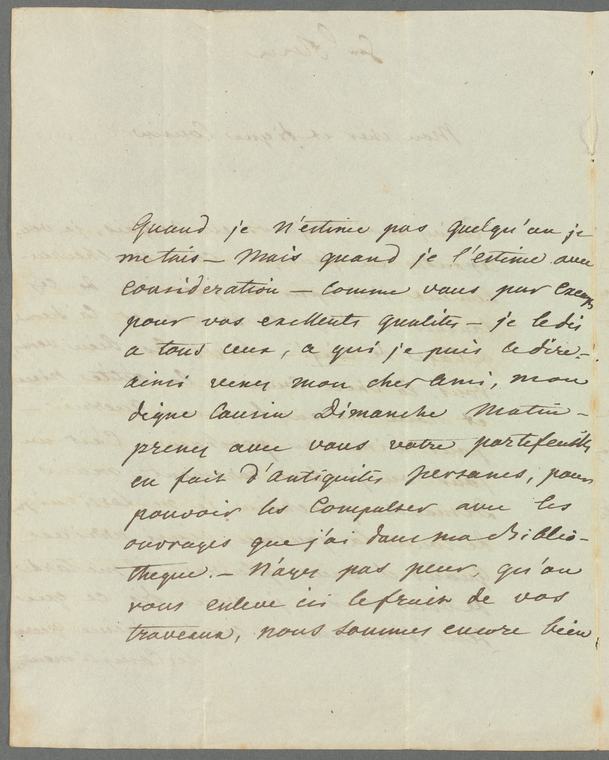 Quand je n'estime pas quelqu'un je
me tais – Mais quand je l'estime avec
Consideration – comme vous par Exemp
pour vos exellents qualités – je le dis
a tous ceux, a qui je puis le dire –
ainsi venez mon cher Ami, mon
digne Cousin Dimanche Matin –
prenez avec vous votre portefeuille
en fait d'Antiquités persanes, pour
pouvoir les Compulser avec les
ouvrages que j'ai dans ma Biblio-
theque. – N'ayez pas peur, qu'on
vous enleve ici le fruit de vos
traveaux, nous sommes encore bien